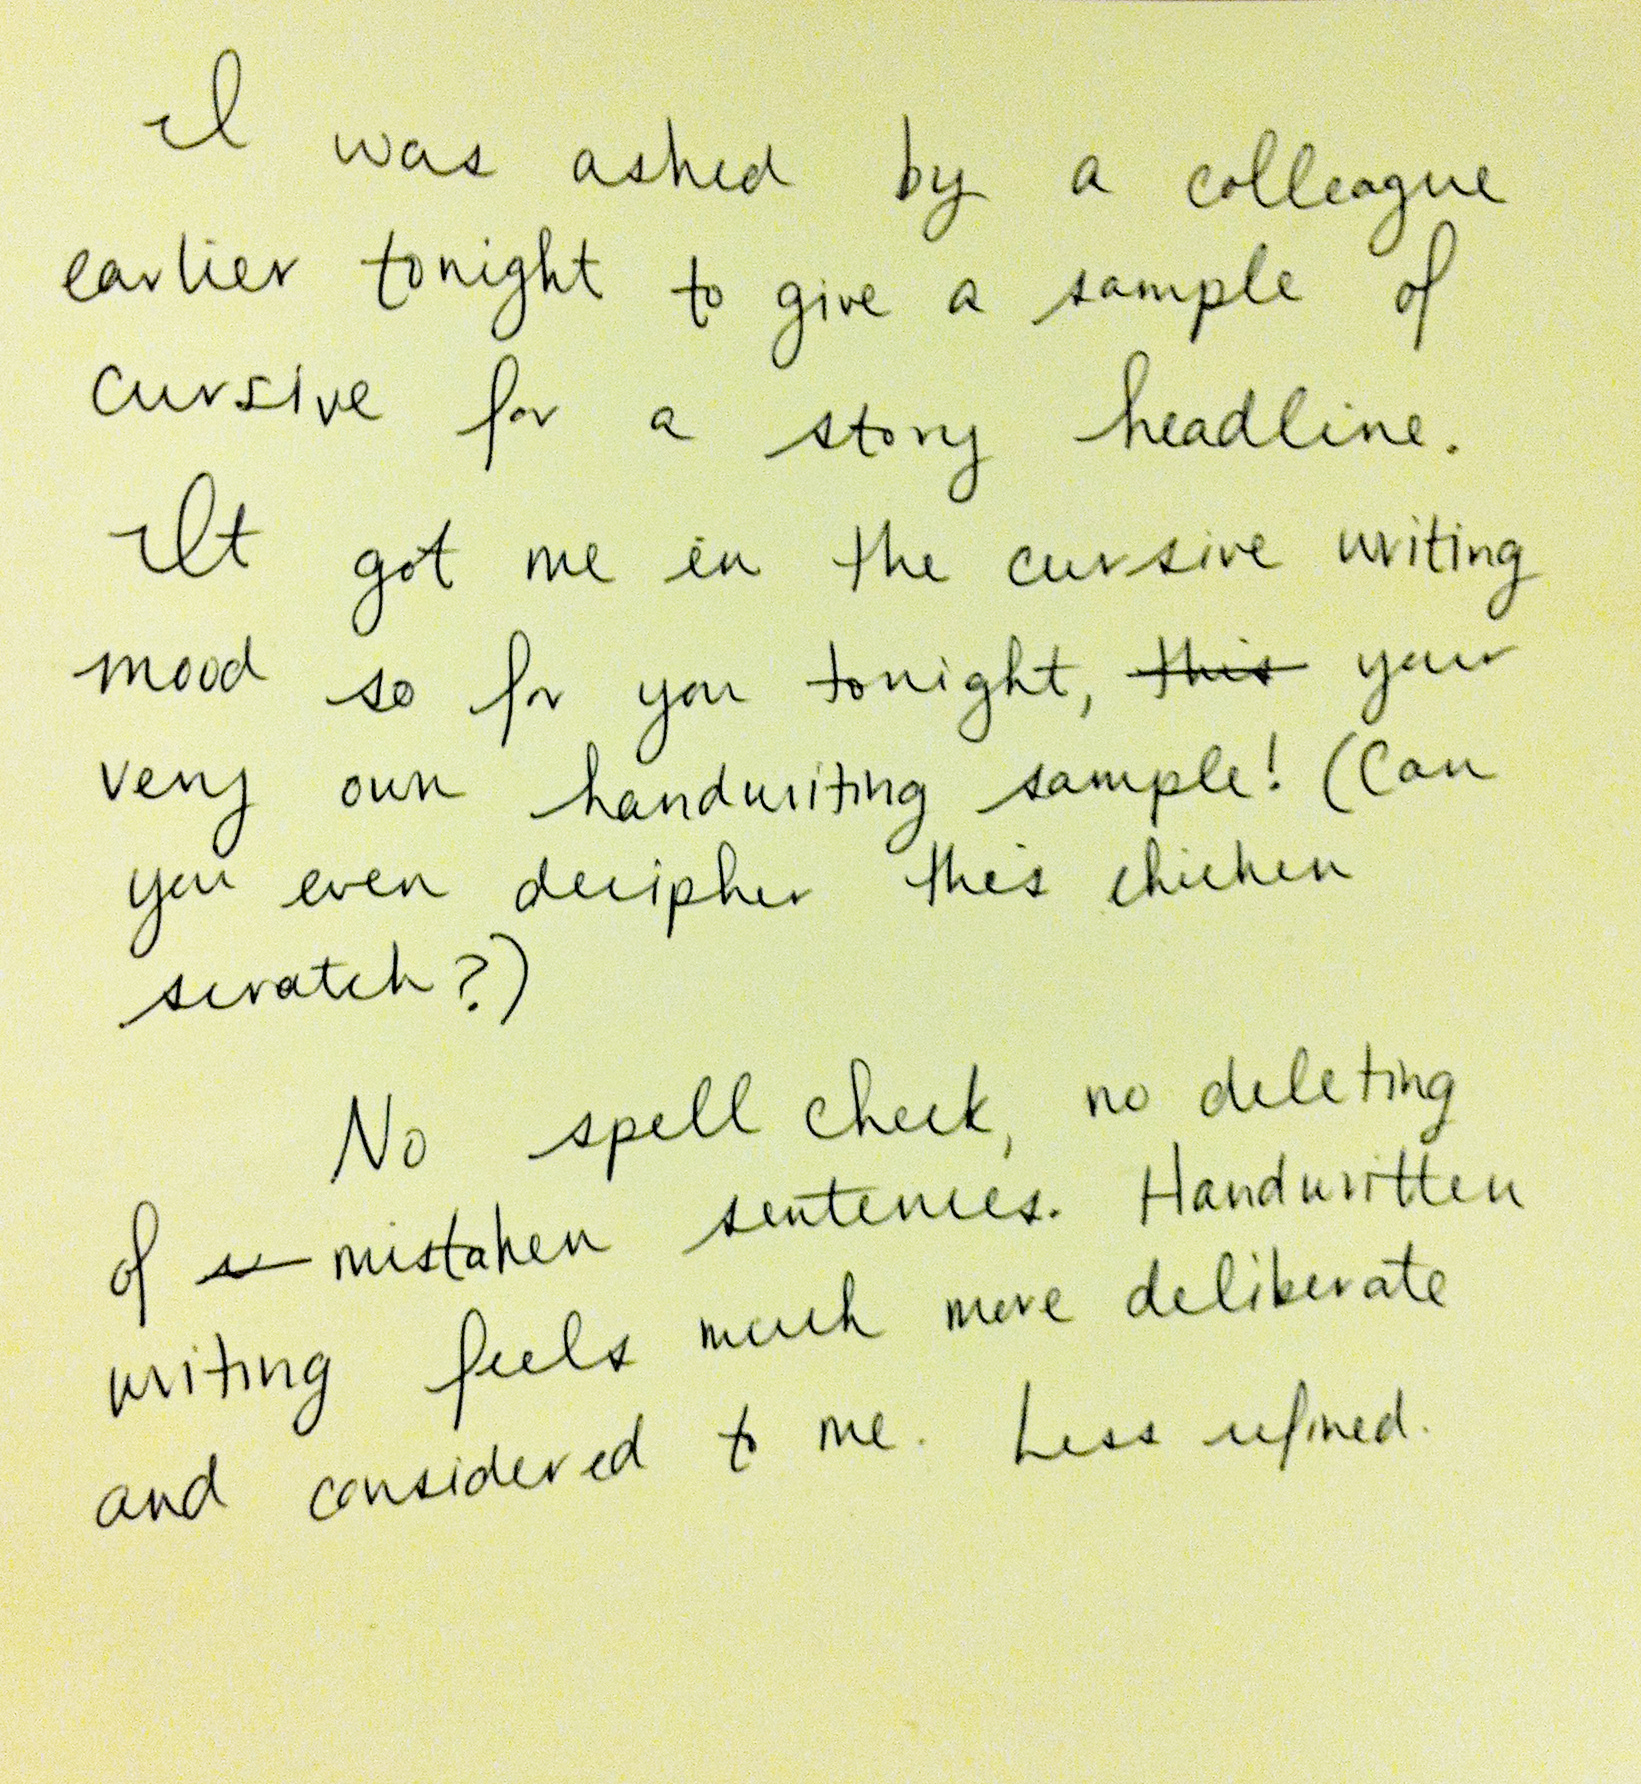 I was asked by a colleague
earlier tonight to give a sample of
cursive for a story headline.
It got me in the cursive writing
mood so for you tonight, ~~this~~ your
very own handwriting sample! (Can
you even decipher this chicken
scratch?)
No spell check, no deleting
of mistaken sentences. Handwritten
writing feels much more deliberate
and considered to me. Less refined.